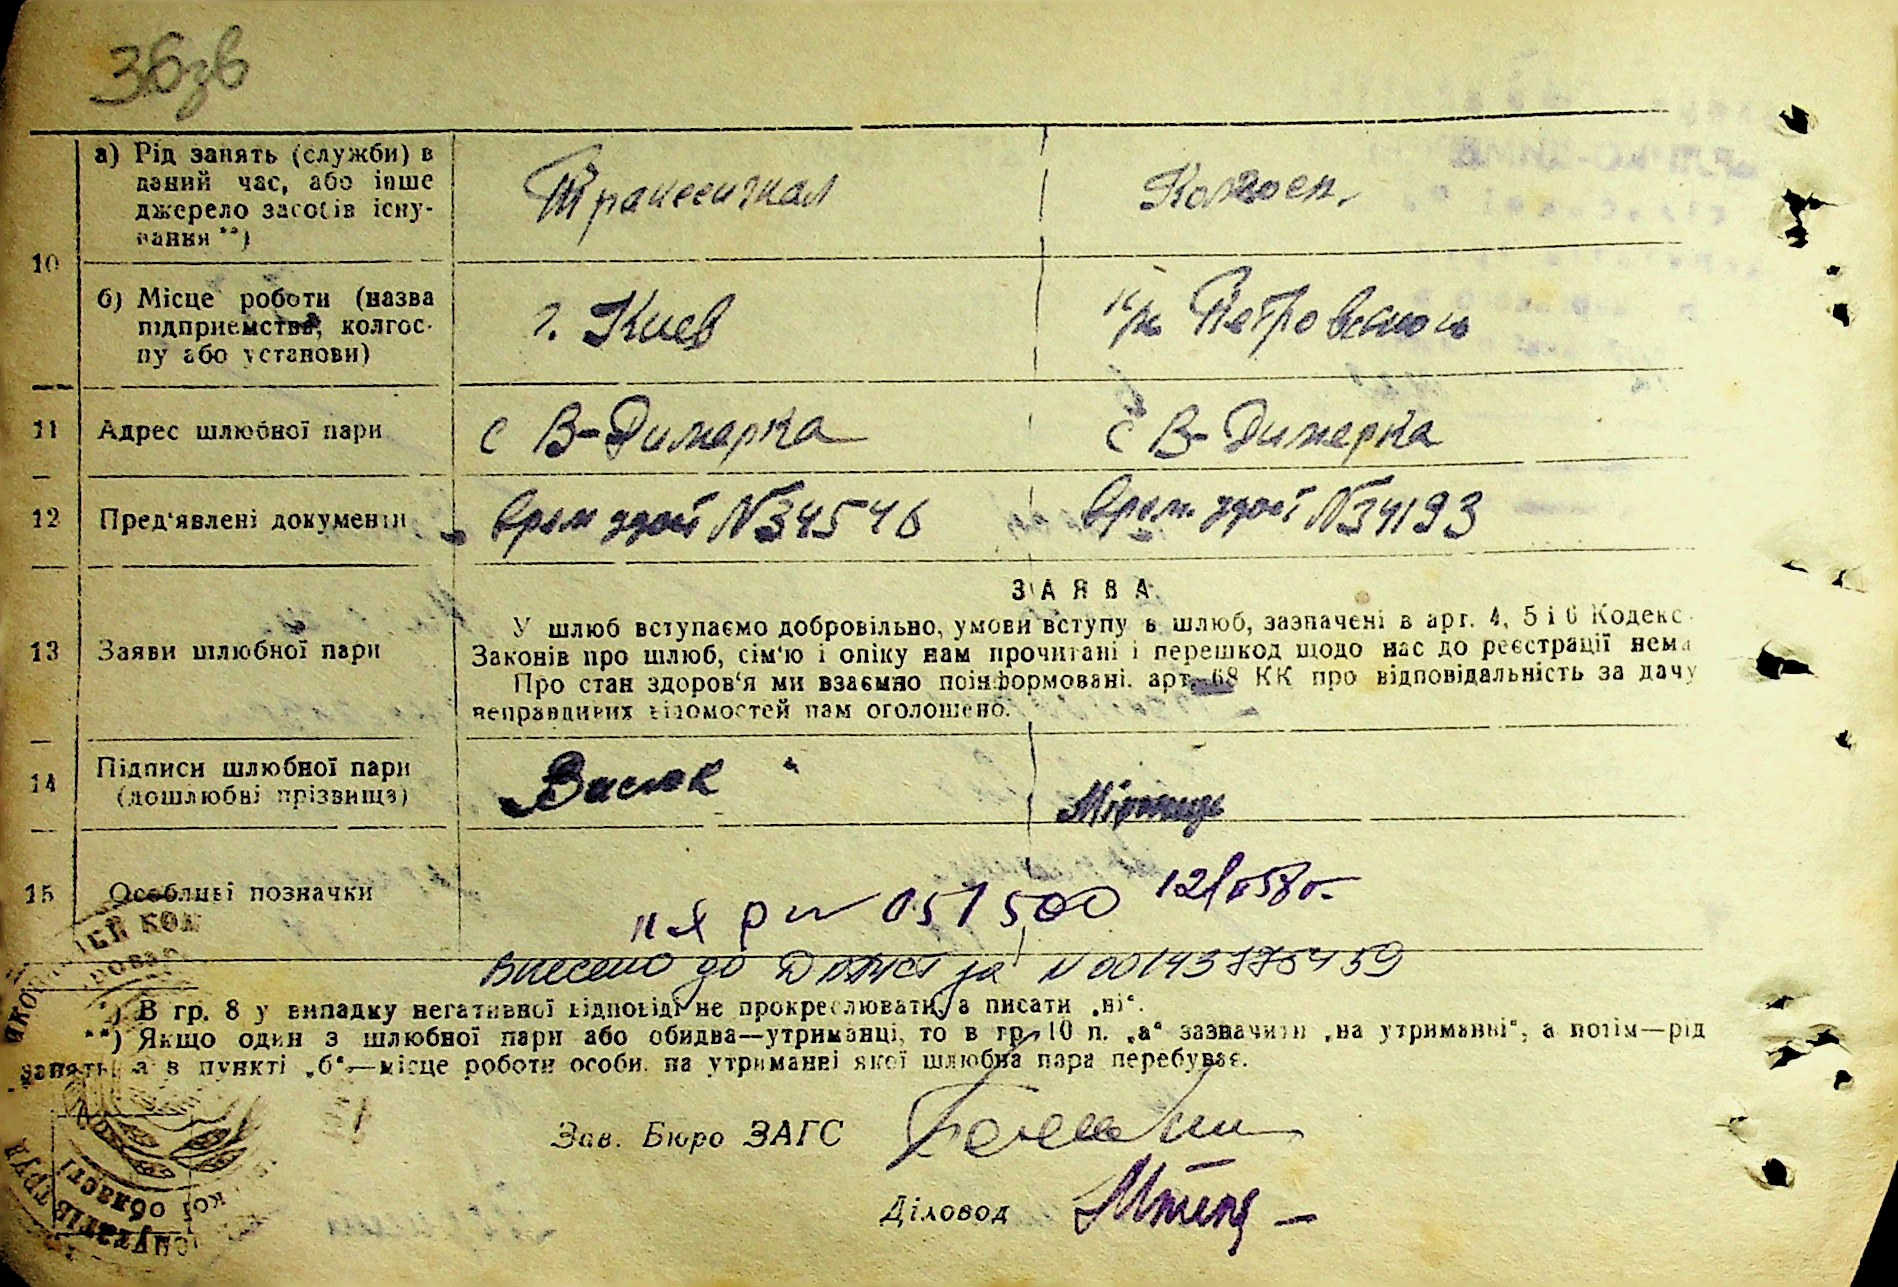 36зв
а) Рід занять (служби) в
даний час, або інше
джерело засобів існу-
вання **)
Транссигнал
Колхозн.
10
б) Місце роботи (назва
підприємства, колгос-
пу або установи)
г. Киев
Петровского
11 Адрес шлюбної пари
с В-Димерка
с В-Димерка
12 Пред'явлені документи
врем удост N34546
врем. удост N34193
ЗАЯВА
13 Заяви шлюбної пари
У шлюб вступаємо добровільно, умови вступу в шлюб, зазначені в арт. 4, 5 і 6 Кодекс
Законів про шлюб, сім'ю і опіку нам прочитані і перешкод щодо нас до реєстрації нема
Про стан здоров'я ми взаємно поінформовані. арт. 68 КК про відповідальність за дачу
неправдивих відомостей нам оголошено.
14 Підписи шлюбної пари
(дошлюбні прізвища)
15 Особливі позначки
051500
Внесено до за N 00143
*) В гр. 8 у випадку негативної відповіді не прокреслювати, а писати „ні“.
**) Якщо один з шлюбної пари або обидва—утриманці, то в гр. 10 п. „а“ зазначити „на утриманні“, а потім—рід
занять, а в пункті „б“—місце роботи особи, на утриманні якої шлюбна пара перебуває.
Зав. Бюро ЗАГС
Діловод
області